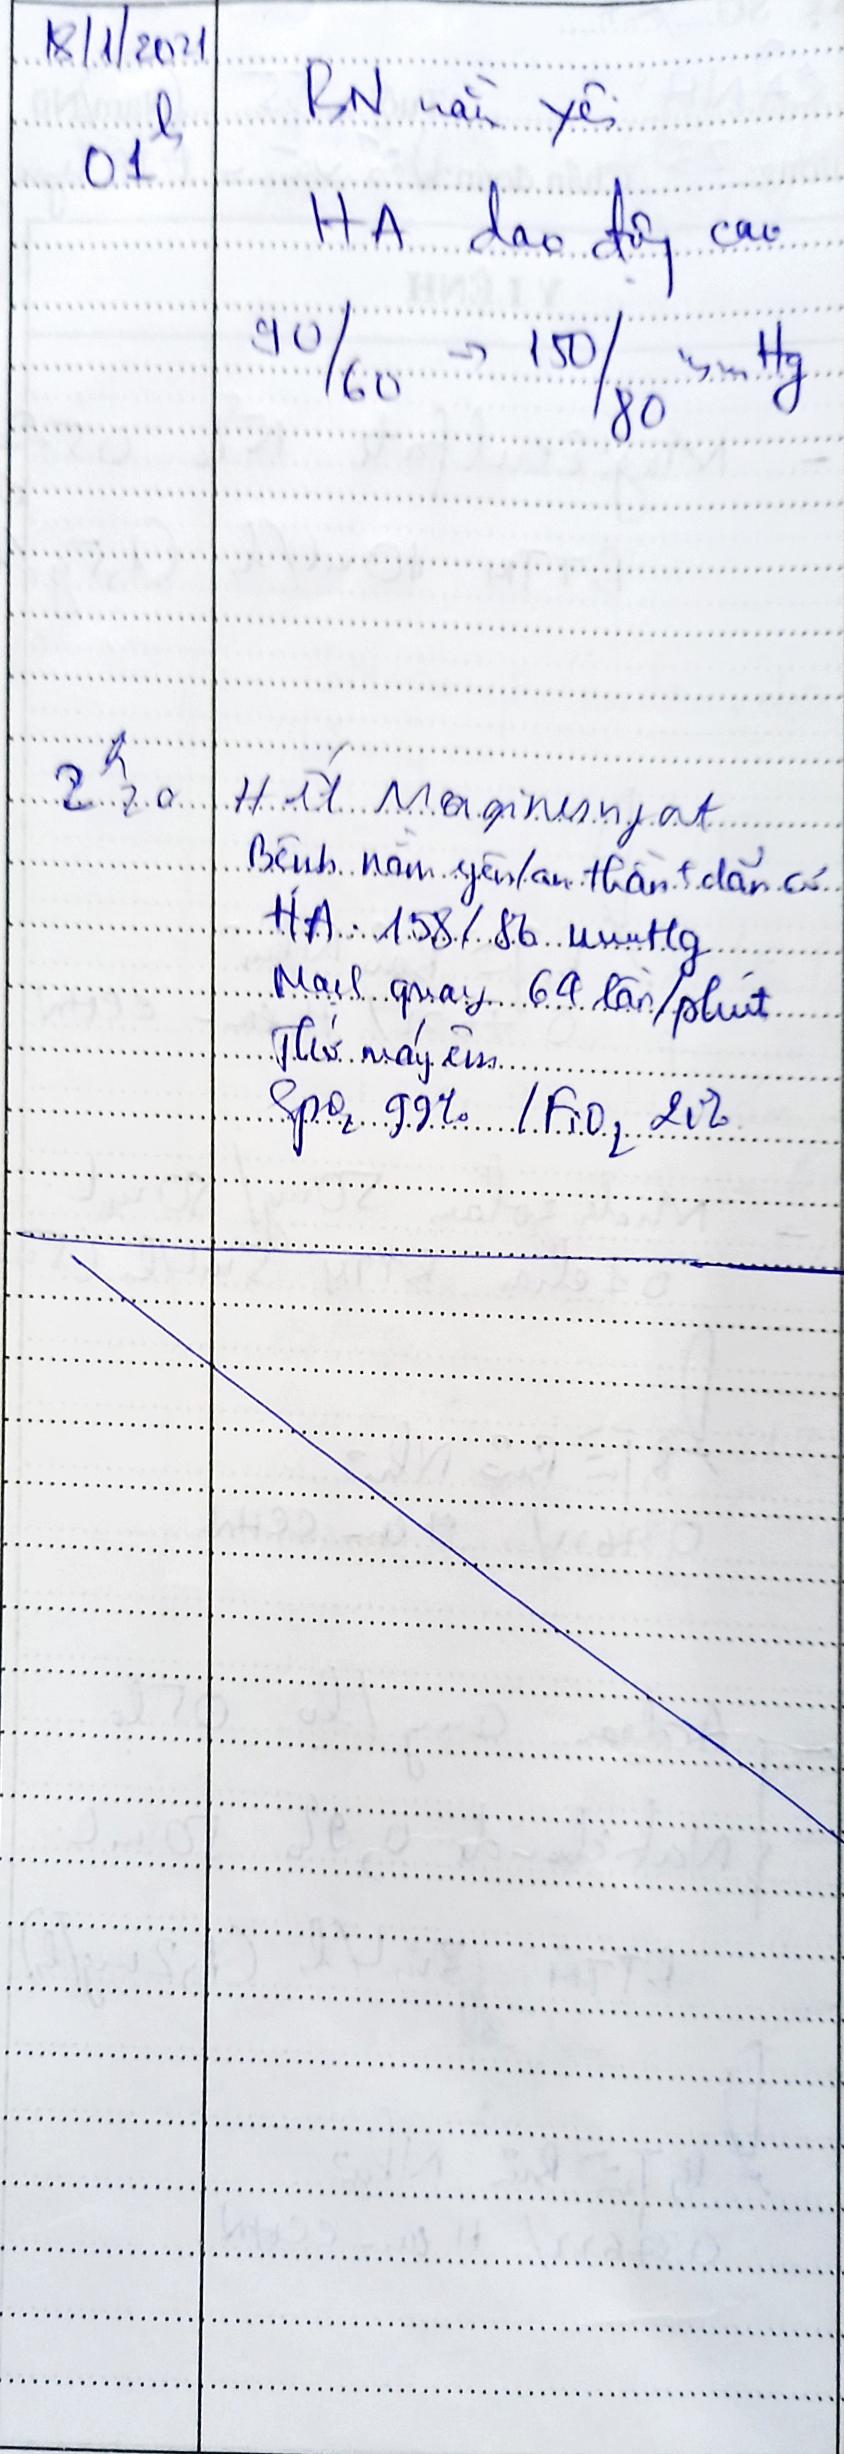 18/1/2021
01h
BN nằm yên
HA dao động cao
90/60 → 150/80 mmHg
2h20
Hết Maginesnyat
Bệnh nằm yên/an thần + dãn cơ
HA: 158/86 mmHg
Mạch quay 64 lần/phút
Thở máy êm
SpO2 99% / FiO2